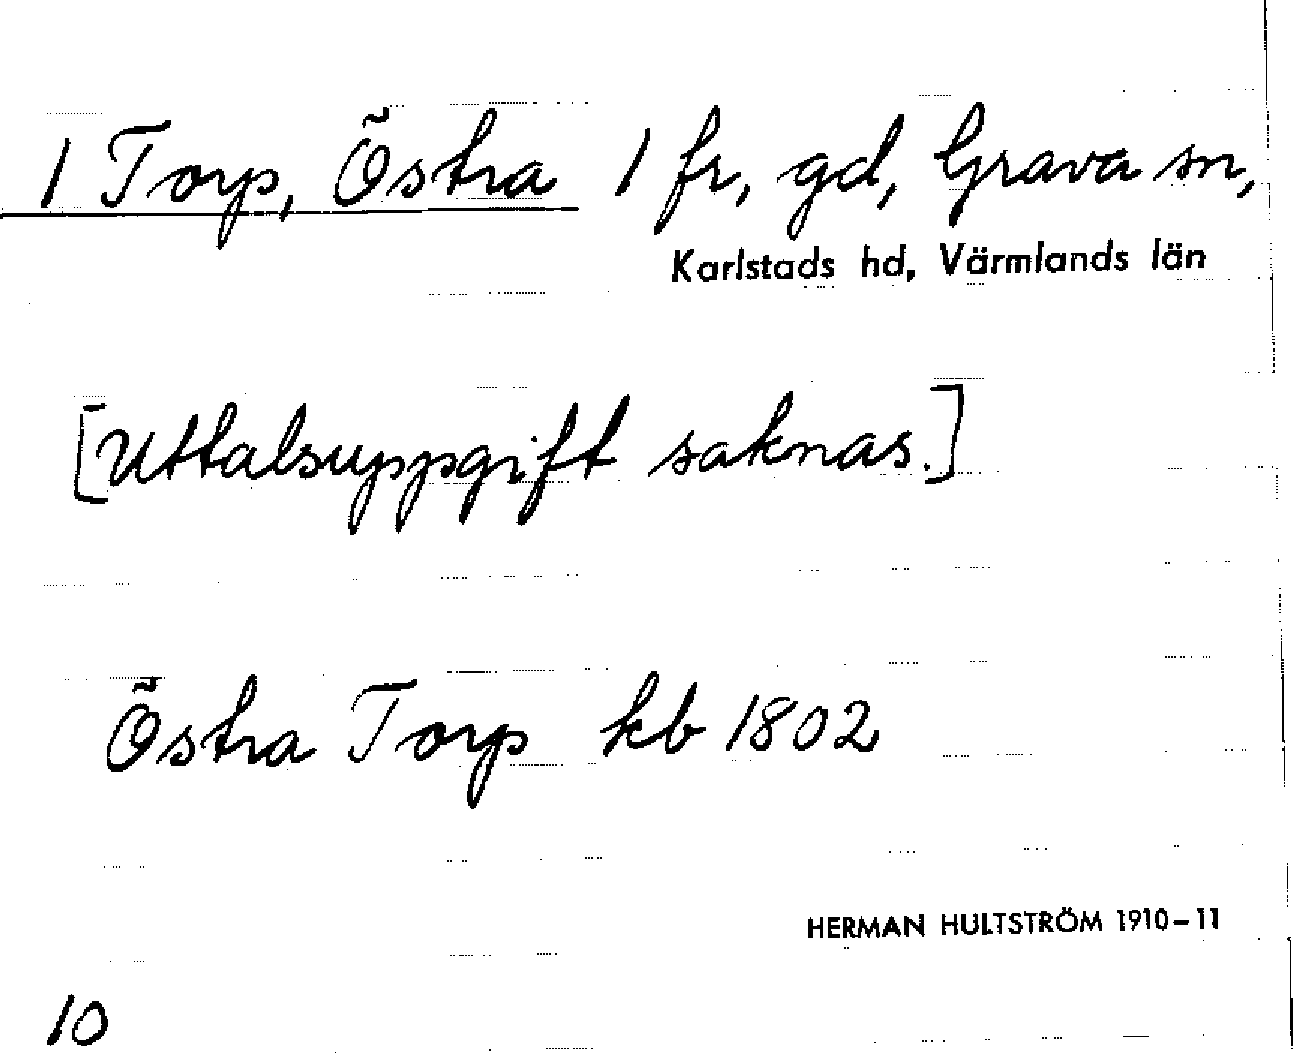 1 Torp, Östra 1 fr, gd, Grava sn,
Karlstads hd, Värmlands län
[Uttalsuppgift saknas.]
Östra Torp kb 1802
HERMAN HULTSTRÖM 1910-11
10